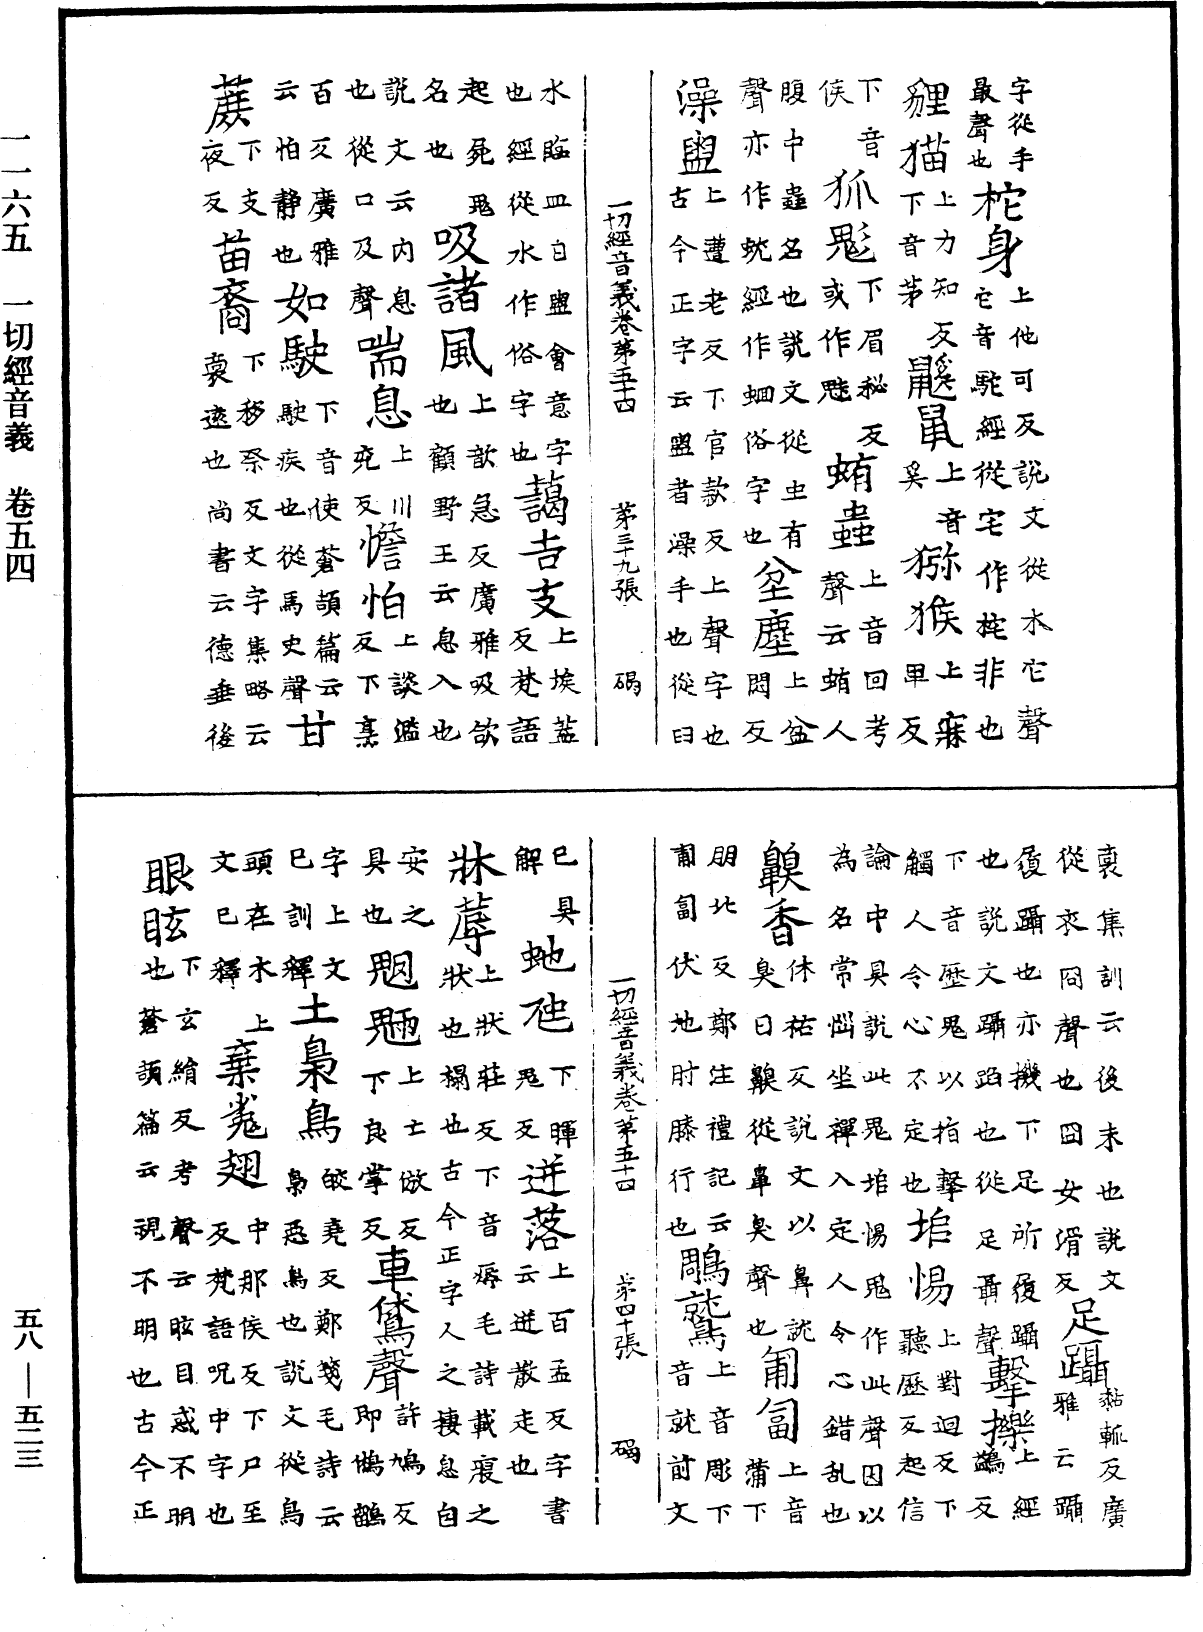 一一六五　一切經音義　卷五四
五八—五二三
字從手最聲也柁身上他可反說文從水它聲它音駝經從宅作柁非也
貍猫上力知反下音茅鼷鼠上音奚獼猴上寐卑反
下音侯狐鬽下眉秘反或作魅蛕蟲上音回考聲云蛕人
腹中蟲名也說文從虫有聲亦作蚘經作蛔俗字也坌塵上盆悶反
澡盥上遭老反下官欵反上聲字也古今正字云盥者澡手也從臼
一切經音義卷第五十四　第三十九張　碣
水臨皿臼盥會意字也經從水作俗字也藹吉支上埃蓋反梵語
起死鬼名也吸諸風上歆急反廣雅吸欱也顧野王云息入也
說文云內息也從口及聲喘息上川兖反憺怕上談濫反下烹
百反廣雅云怕静也如駛下音使蒼頡篇云駛疾也從馬史聲甘
蔗下支夜反苗裔下移祭反文字集略云裔遠也尚書云德垂後
裔集訓云後末也說文從衣冏聲也冏女滑反足躡黏輒反廣雅云躡
履躡也亦機下足所履躡也說文躡蹈也從足聶聲擊擽上經鷁反
下音歷鬼以指擊觸人令心不定也㙛惕上對迴反下聽歷反起信
論中具說此鬼㙛惕鬼作此聲因以為名常惱坐禪入定人令心錯乱也
齅香休祐反說文以鼻就臭曰齅從鼻臭聲也匍匐上音蒲下
朋北反鄭注禮記云匍匐伏地肘膝行也鵰鷲上音彫下音就前文
一切經音義卷第五十四　第四十張　碣
已具解虵虺下暉鬼反迸落上百孟反字書云迸散走也
牀蓐上狀莊反下音辱毛詩載寢之狀也榻也古今正字人之棲息自
安之具也魍魎上亡倣反下良掌反車䲧聲上許鳩反即鵂鶹
字上文已訓釋土梟鳥皎堯反鄭箋毛詩云梟惡鳥也說文從鳥
頭在木上文已釋棄㲋翅中那侯反下尸至反梵語呪中字也
眼眩下玄絹反考聲云眩目惑不明也蒼頡篇云視不明也古今正